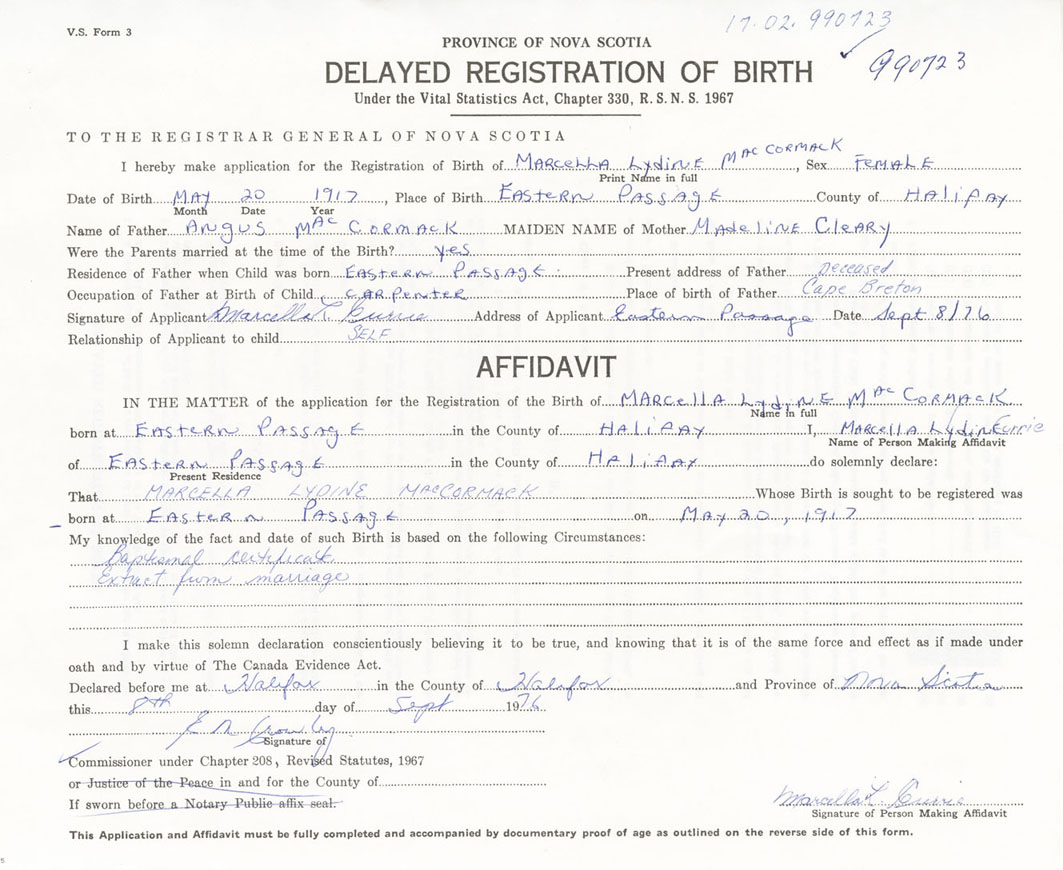 V.S. Form 3
17.02.990723
PROVINCE OF NOVA SCOTIA
990723
DELAYED REGISTRATION OF BIRTH
Under the Vital Statistics Act, Chapter 330, R.S.N.S. 1967
TO THE REGISTRAR GENERAL OF NOVA SCOTIA
I hereby make application for the Registration of Birth of MARCELLA LydiNE MAC CORMACK, Sex FEMALE
Print Name in full
Date of Birth MAY 20 1917, Place of Birth EASTERN PASSAGE County of HALIFAX
Month Date Year
Name of Father ANGUS MAC CORMACK MAIDEN NAME of Mother MadeliNE CLEARY
Were the Parents married at the time of the Birth? yes
Residence of Father when Child was born EASTERN PASSAGE Present address of Father Deceased
Occupation of Father at Birth of Child CARPENTER Place of birth of Father Cape Breton
Signature of Applicant Marcella L Currie Address of Applicant Eastern Passage Date Sept 8/76
Relationship of Applicant to child SELF
AFFIDAVIT
IN THE MATTER of the application for the Registration of the Birth of MARCELLA LydiNE MAC CORMACK
Name in full
born at EASTERN PASSAGE in the County of HALIFAX I, MARCELLA LydiNE Currie
Name of Person Making Affidavit
of EASTERN PASSAGE in the County of HALIFAX do solemnly declare:
Present Residence
That MARCELLA LYDINE MACCORMACK Whose Birth is sought to be registered was
born at EASTERN PASSAGE on MAY 20, 1917
My knowledge of the fact and date of such Birth is based on the following Circumstances:
Baptismal certificate
Extract from marriage
I make this solemn declaration conscientiously believing it to be true, and knowing that it is of the same force and effect as if made under
oath and by virtue of The Canada Evidence Act.
Declared before me at Halifax in the County of Halifax and Province of Nova Scotia
this 8th day of Sept 1976
Signature of
Commissioner under Chapter 208, Revised Statutes, 1967
or Justice of the Peace in and for the County of
If sworn before a Notary Public affix seal.
Marcella L Currie
Signature of Person Making Affidavit
This Application and Affidavit must be fully completed and accompanied by documentary proof of age as outlined on the reverse side of this form.